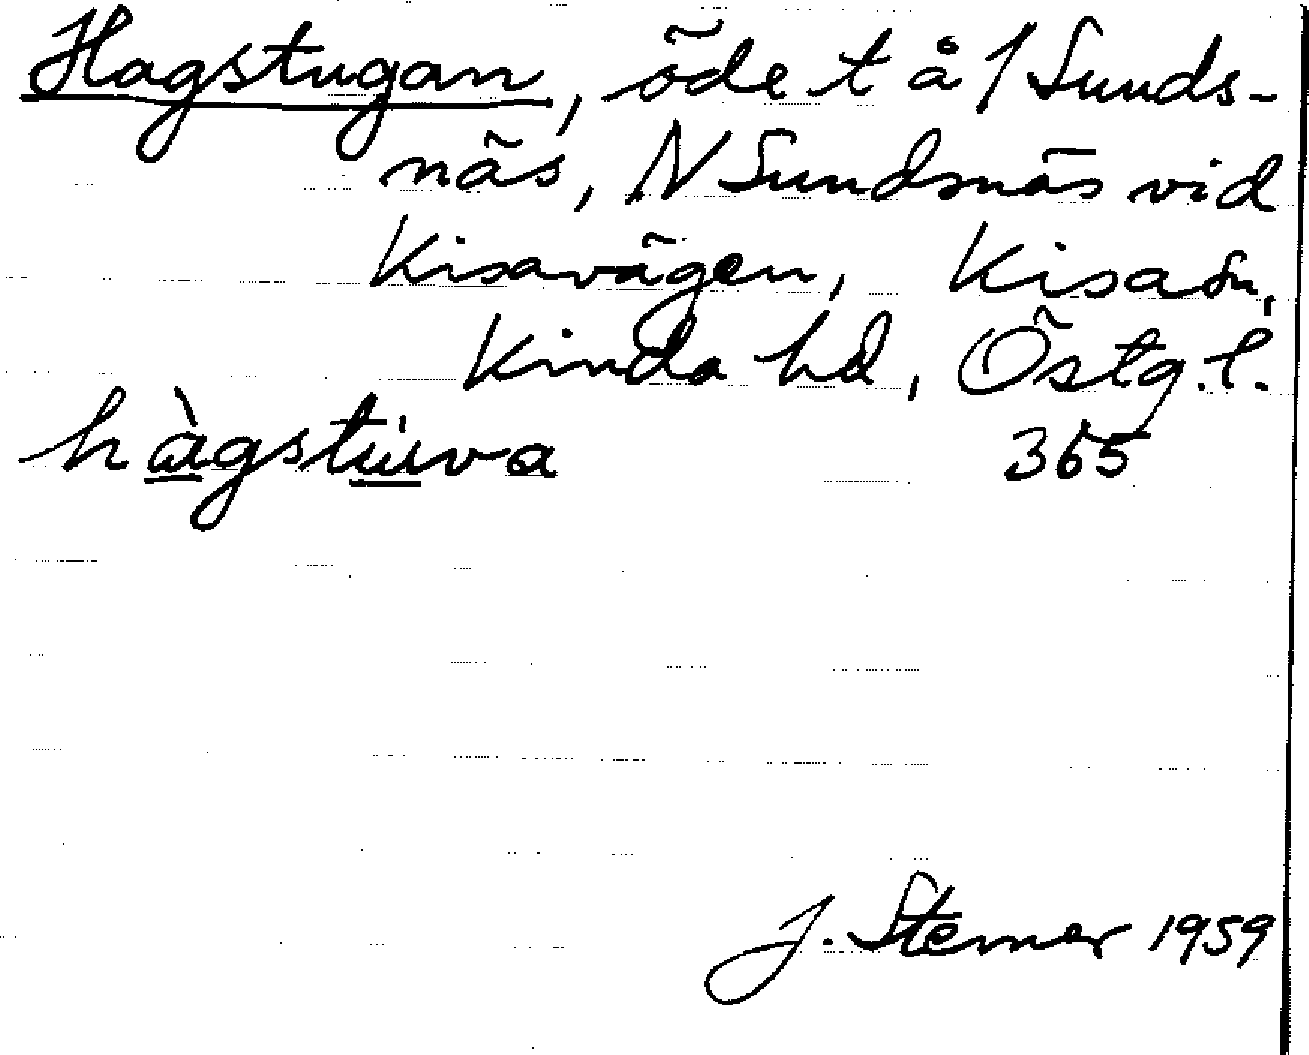 Hagstugan, öde t å 1 Sunds-
näs, N Sundsnäs vid
Kisavägen, Kisa sn,
Kinda hd, Östg. l.
hàgstùva 365
J. Sterner 1959